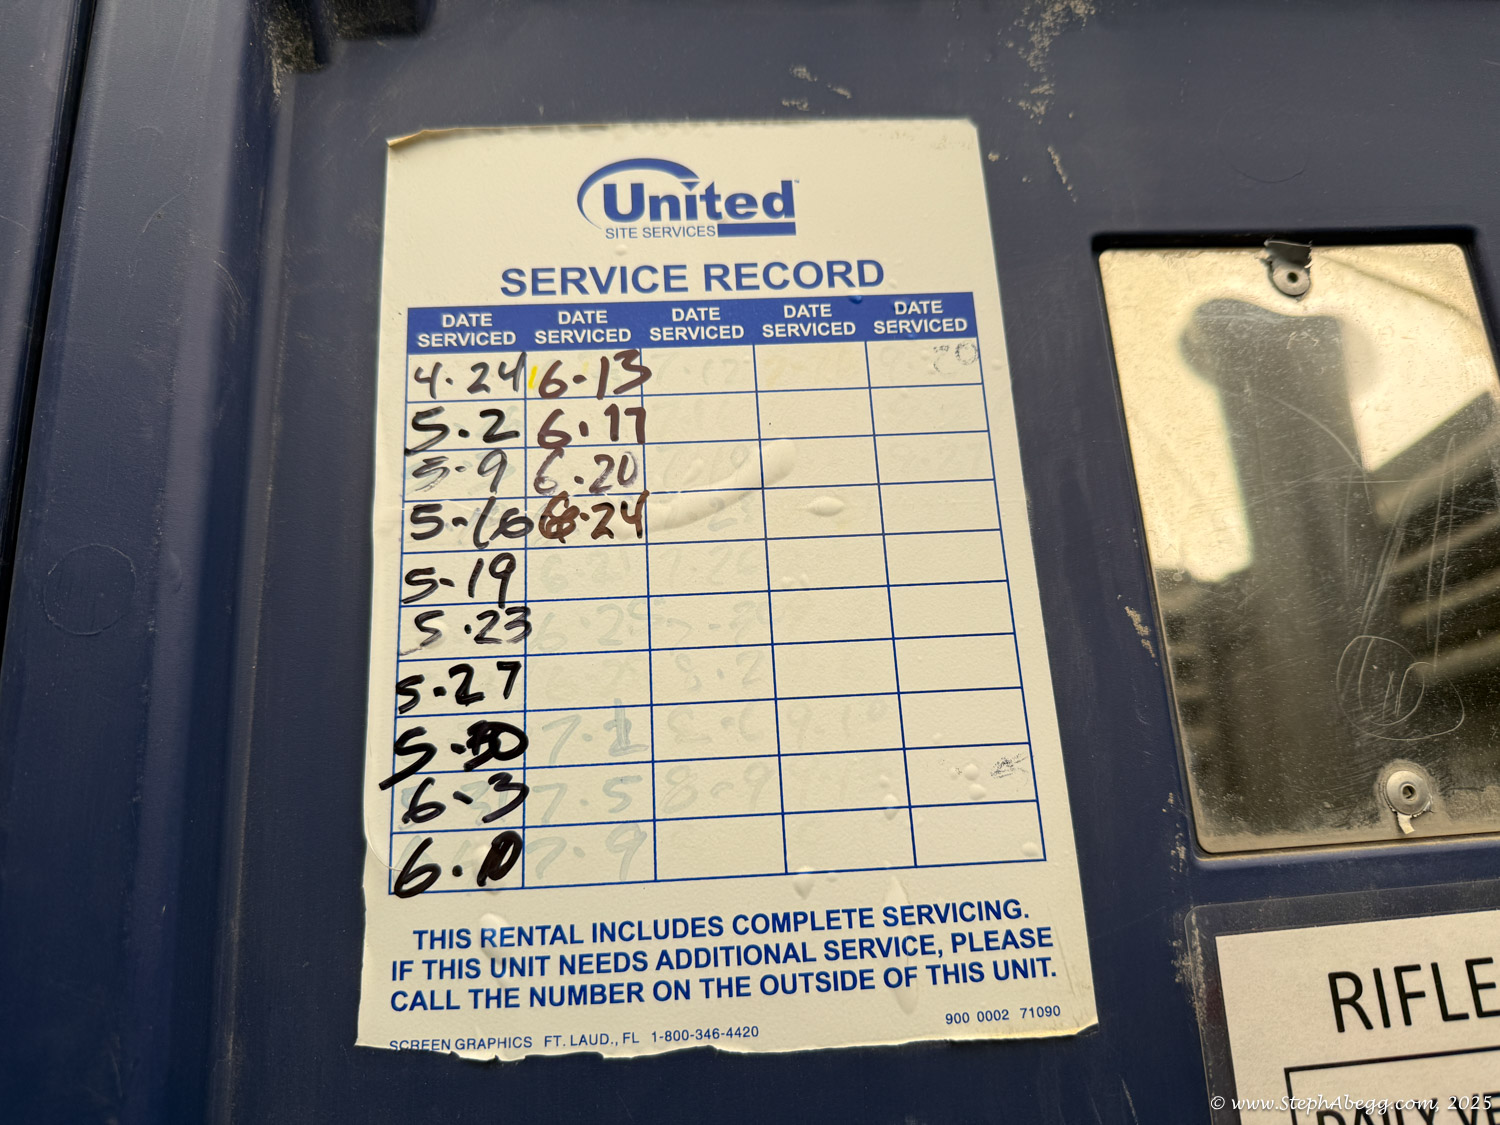 United
SITE SERVICES
SERVICE RECORD
DATE SERVICED DATE SERVICED DATE SERVICED DATE SERVICED DATE SERVICED
4.24 6-13
5.2 6.17
5-9 6.20
5-16 6.24
5-19
5.23
5.27
5.30 7.1
6-3 7.5 8-9
6.10 7.9
THIS RENTAL INCLUDES COMPLETE SERVICING.
IF THIS UNIT NEEDS ADDITIONAL SERVICE, PLEASE
CALL THE NUMBER ON THE OUTSIDE OF THIS UNIT.
SCREEN GRAPHICS FT. LAUD., FL 1-800-346-4420
900 0002 71090
RIFLE
DAILY
© www.StephAbegg.com, 2025